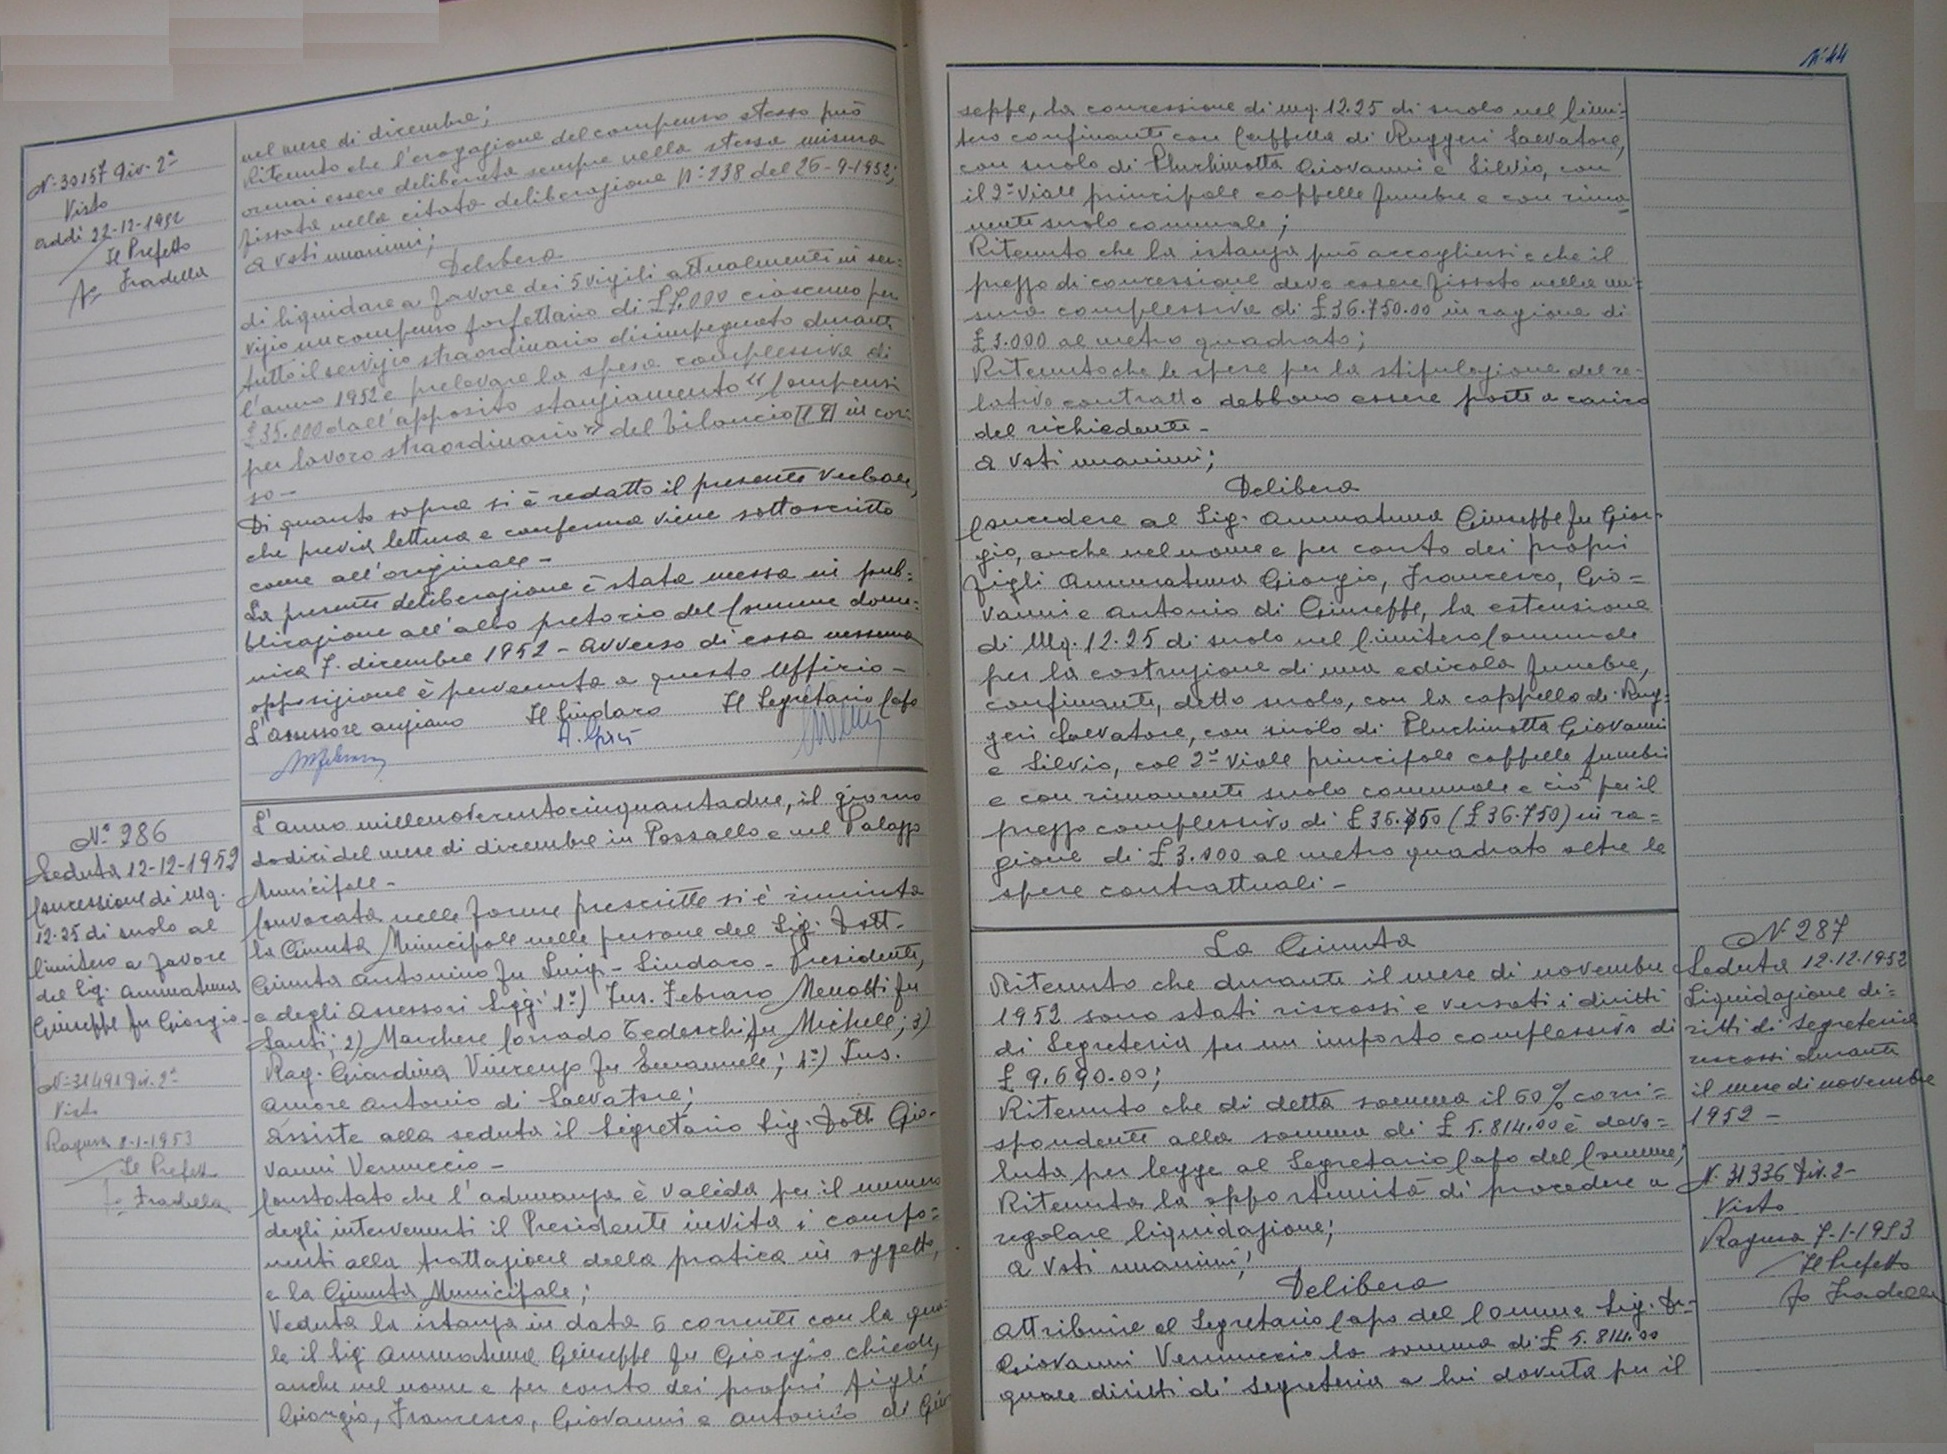 N. 30157 Div. 2ª
Visto
addì 22-12-1952
Il Prefetto
fo Fradella
nel mese di dicembre;
Ritenuto che l'erogazione del compenso stesso può
ormai essere deliberata sempre nella stessa misura
fissata nella citata deliberazione n: 238 del 26-9-1952;
a voti unanimi;
Delibera
di liquidare a favore dei 5 vigili attualmente in ser=
vizio un compenso forfettario di £ 7.000 ciascuno per
tutto il servizio straordinario disimpegnato durante
l'anno 1952 e prelevare la spesa complessiva di
£ 35.000 dall'apposito stanziamento "Compensi
per lavoro straordinario" del bilancio in cor=
so-
Di quanto sopra si è redatto il presente verbale,
che previa lettura e conferma viene sottoscritto
come all'originale-
La presente deliberazione è stata messa in pub=
blicazione all'albo pretorio del Comune dome=
nica 7. dicembre 1952 - Avverso di essa nessuna
opposizione è pervenuta a questo Ufficio-
L'assessore anziano Il Sindaco Il Segretario Capo
N° 286
Seduta 12-12-1952
Concessione di mq.
12.25 di suolo al
Cimitero a favore
del Sig. Ammatuna
Giuseppe fu Giorgio-
N: 31491 Div. 2ª
Visto
Ragusa 8-1-1953
Il Prefetto
fo Fradella
L'anno millenovecentocinquantadue, il giorno
dodici del mese di dicembre in Pozzallo e nel Palazzo
Municipale-
Convocata nelle forme prescritte si è riunita
la Giunta Municipale nelle persone del Sig. Dott.
Giunta Antonino fu Luigi - Sindaco - Presidente,
e degli Assessori Sigg: 1°) Ins. Febraro Menotti fu
Santi; 2) Marchese Corrado Tedeschi fu Michele; 3)
Rag. Giardina Vincenzo fu Emanuele; 4°) Ins.
Amore Antonio di Salvatore;
Assiste alla seduta il Segretario Sig. Dott. Gio-
vanni Vernuccio-
Constatato che l'adunanza è valida per il numero
degli intervenuti il Presidente invita i compo=
nenti alla trattazione della pratica in oggetto,
e la Giunta Municipale;
Veduta la istanza in data 6 corrente con la qua=
le il Sig. Ammatuna Giuseppe fu Giorgio chiede,
anche nel nome e per conto dei propri figli
Giorgio, Francesco, Giovanni e Antonio di Giu
N. 44
seppe, la concessione di mq. 12.25 di suolo nel Cimi=
tero confinante con Cappella di Ruggeri Salvatore,
con suolo di Pluchinotta Giovanni e Silvio, con
il 2° Viale principale cappelle funebre e con rima=
nente suolo comunale;
Ritenuto che la istanza può accogliersi e che il
prezzo di concessione deve essere fissato nella mi=
sura complessiva di £ 36.750.00 in ragione di
£ 3.000 al metro quadrato;
Ritenuto che le spese per la stipulazione del re-
lativo contratto debbono essere poste a carico
del richiedente-
a voti unanimi;
Delibera
Concedere al Sig. Ammatuna Giuseppe fu Gior-
gio, anche nel nome e per conto dei propri
figli Ammatuna Giorgio, Francesco, Gio=
vanni e Antonio di Giuseppe, la estensione
di Mq. 12.25 di suolo nel Cimitero Comunale
per la costruzione di una edicola funebre,
confinante, detto suolo, con la cappella di Rug=
geri Salvatore, con suolo di Pluchinotta Giovanni
e Silvio, col 2° Viale principale cappelle funebri
e con rimanente suolo comunale e ciò per il
prezzo complessivo di £ 36.750 (£ 36.750) in ra=
gione di £ 3.000 al metro quadrato oltre le
spese contrattuali-
La Giunta
Ritenuto che durante il mese di novembre
1952 sono stati riscossi e versati i diritti
di Segreteria per un importo complessivo di
£ 9.690.00;
Ritenuto che di detta somma il 60% corri=
spondente alla somma di £ 5.814.00 è dovu=
luta per legge al Segretario Capo del Comune;
Ritenuta la opportunità di procedere a
regolare liquidazione;
a voti unanimi;
Delibera
Attribuire al Segretario Capo del Comune Sig. Dr.
Giovanni Vernuccio la somma di £ 5.814.00
quale diritti di segreteria a lui dovuta per il
N. 287
Seduta 12.12.1952
Liquidazione di=
ritti di Segreteria
riscossi durante
il mese di novembre
1952-
N. 31336 Div. 2-
Visto
Ragusa 7-1-1953
Il Prefetto
fo Fradella